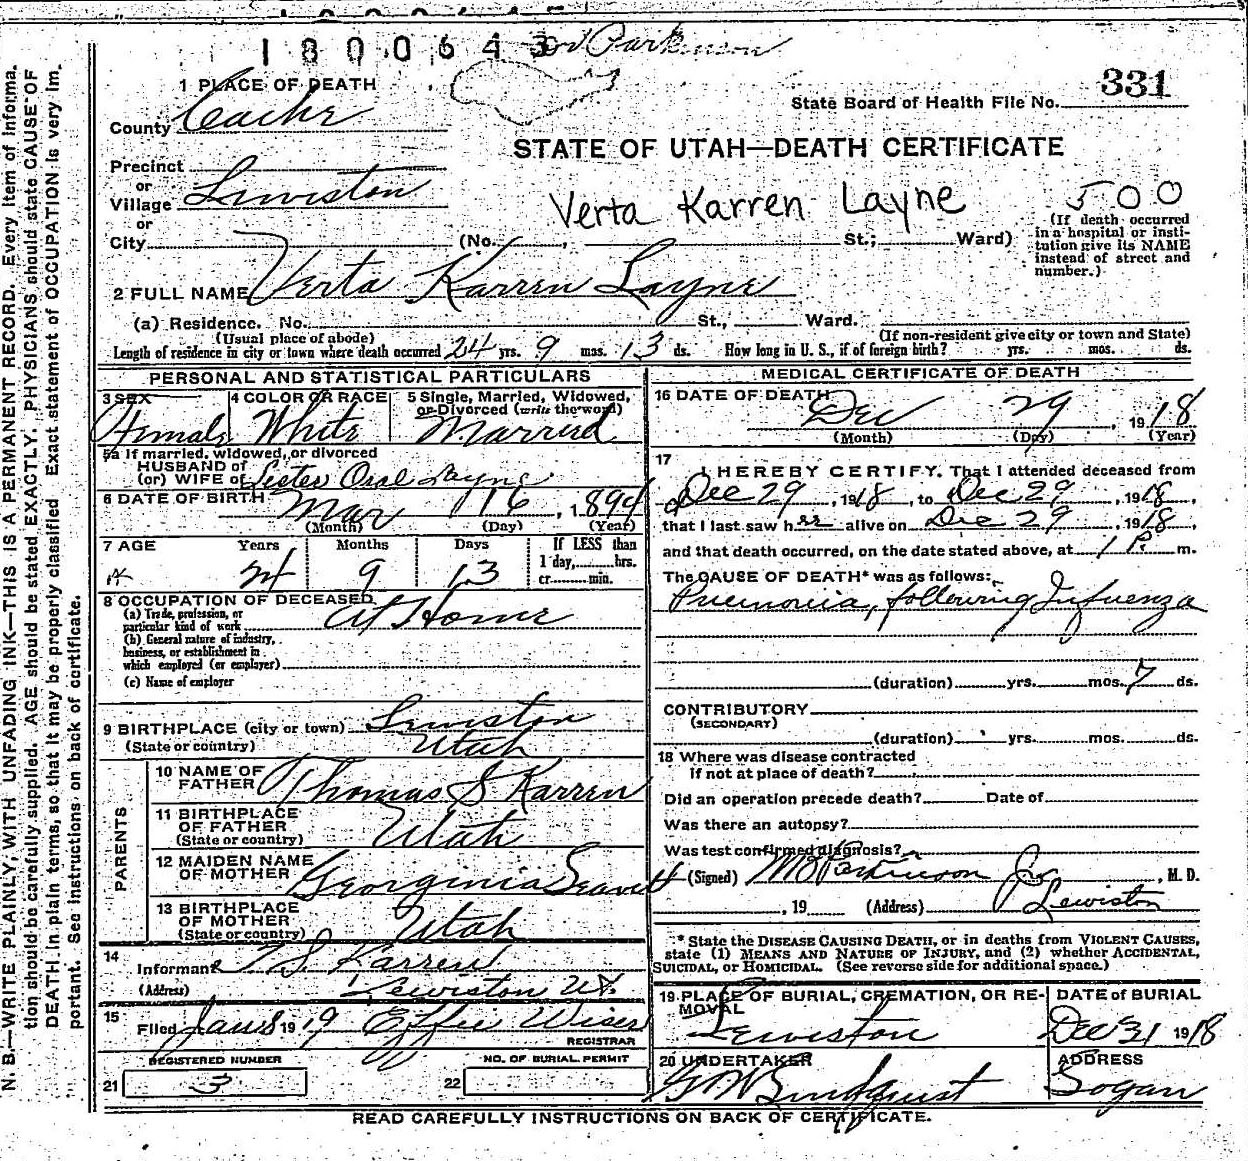 1800643
Dr Parkinson
331
1 PLACE OF DEATH
State Board of Health File No.
County Cache
STATE OF UTAH—DEATH CERTIFICATE
Precinct
or
Village Lewiston
Verta Karren Layne 500
or
City (No. , St.; Ward)
(If death occurred in a hospital or institution give its NAME instead of street and number.)
2 FULL NAME Verta Karren Layne
(a) Residence. No. St., Ward.
(Usual place of abode) (If non-resident give city or town and State)
Length of residence in city or town where death occurred 24 yrs. 9 mos. 13 ds. How long in U. S., if of foreign birth? yrs. mos. ds.
PERSONAL AND STATISTICAL PARTICULARS
3 SEX Female
4 COLOR OR RACE White
5 Single, Married, Widowed, or Divorced (write the word) Married
5a If married, widowed, or divorced
HUSBAND of
(or) WIFE of Lester Oral Layne
6 DATE OF BIRTH Mar 16, 1894
(Month) (Day) (Year)
7 AGE Years Months Days If LESS than
1 day, hrs.
24 9 13 or min.
8 OCCUPATION OF DECEASED At Home
(a) Trade, profession, or
particular kind of work
(b) General nature of industry,
business, or establishment in
which employed (or employer)
(c) Name of employer
9 BIRTHPLACE (city or town) Lewiston
(State or country) Utah
PARENTS
10 NAME OF FATHER Thomas S Karren
11 BIRTHPLACE OF FATHER
(State or country) Utah
12 MAIDEN NAME OF MOTHER Georginia Leavitt
13 BIRTHPLACE OF MOTHER
(State or country) Utah
14
Informant T S Karren
(Address) Lewiston Ut.
15
Filed Jan 8 1919 Effie Wiser
REGISTRAR
REGISTERED NUMBER NO. OF BURIAL PERMIT
21 3 22
MEDICAL CERTIFICATE OF DEATH
16 DATE OF DEATH
Dec 29, 1918
(Month) (Day) (Year)
17
I HEREBY CERTIFY, That I attended deceased from
Dec 29, 1918, to Dec 29, 1918,
that I last saw her alive on Dec 29, 1918,
and that death occurred, on the date stated above, at 1 P. m.
The CAUSE OF DEATH* was as follows:
Pnemonia, following Infuenza
(duration) yrs. mos. 7 ds.
CONTRIBUTORY
(SECONDARY)
(duration) yrs. mos. ds.
18 Where was disease contracted
if not at place of death?
Did an operation precede death? Date of
Was there an autopsy?
Was test confirmed diagnosis?
(Signed) Parkinson Jr, M. D.
, 19 (Address) Lewiston
* State the DISEASE CAUSING DEATH, or in deaths from VIOLENT CAUSES,
state (1) MEANS AND NATURE OF INJURY, and (2) whether ACCIDENTAL,
SUICIDAL, or HOMICIDAL. (See reverse side for additional space.)
19 PLACE OF BURIAL, CREMATION, OR REMOVAL DATE of BURIAL
Lewiston Dec 31 1918
20 UNDERTAKER ADDRESS
Lindquist Logan
READ CAREFULLY INSTRUCTIONS ON BACK OF CERTIFICATE.
N. B.—WRITE PLAINLY, WITH UNFADING INK—THIS IS A PERMANENT RECORD. Every item of informa-
tion should be carefully supplied. AGE should be stated EXACTLY. PHYSICIANS should state CAUSE OF
DEATH in plain terms, so that it may be properly classified. Exact statement of OCCUPATION is very im-
portant. See instructions on back of certificate.